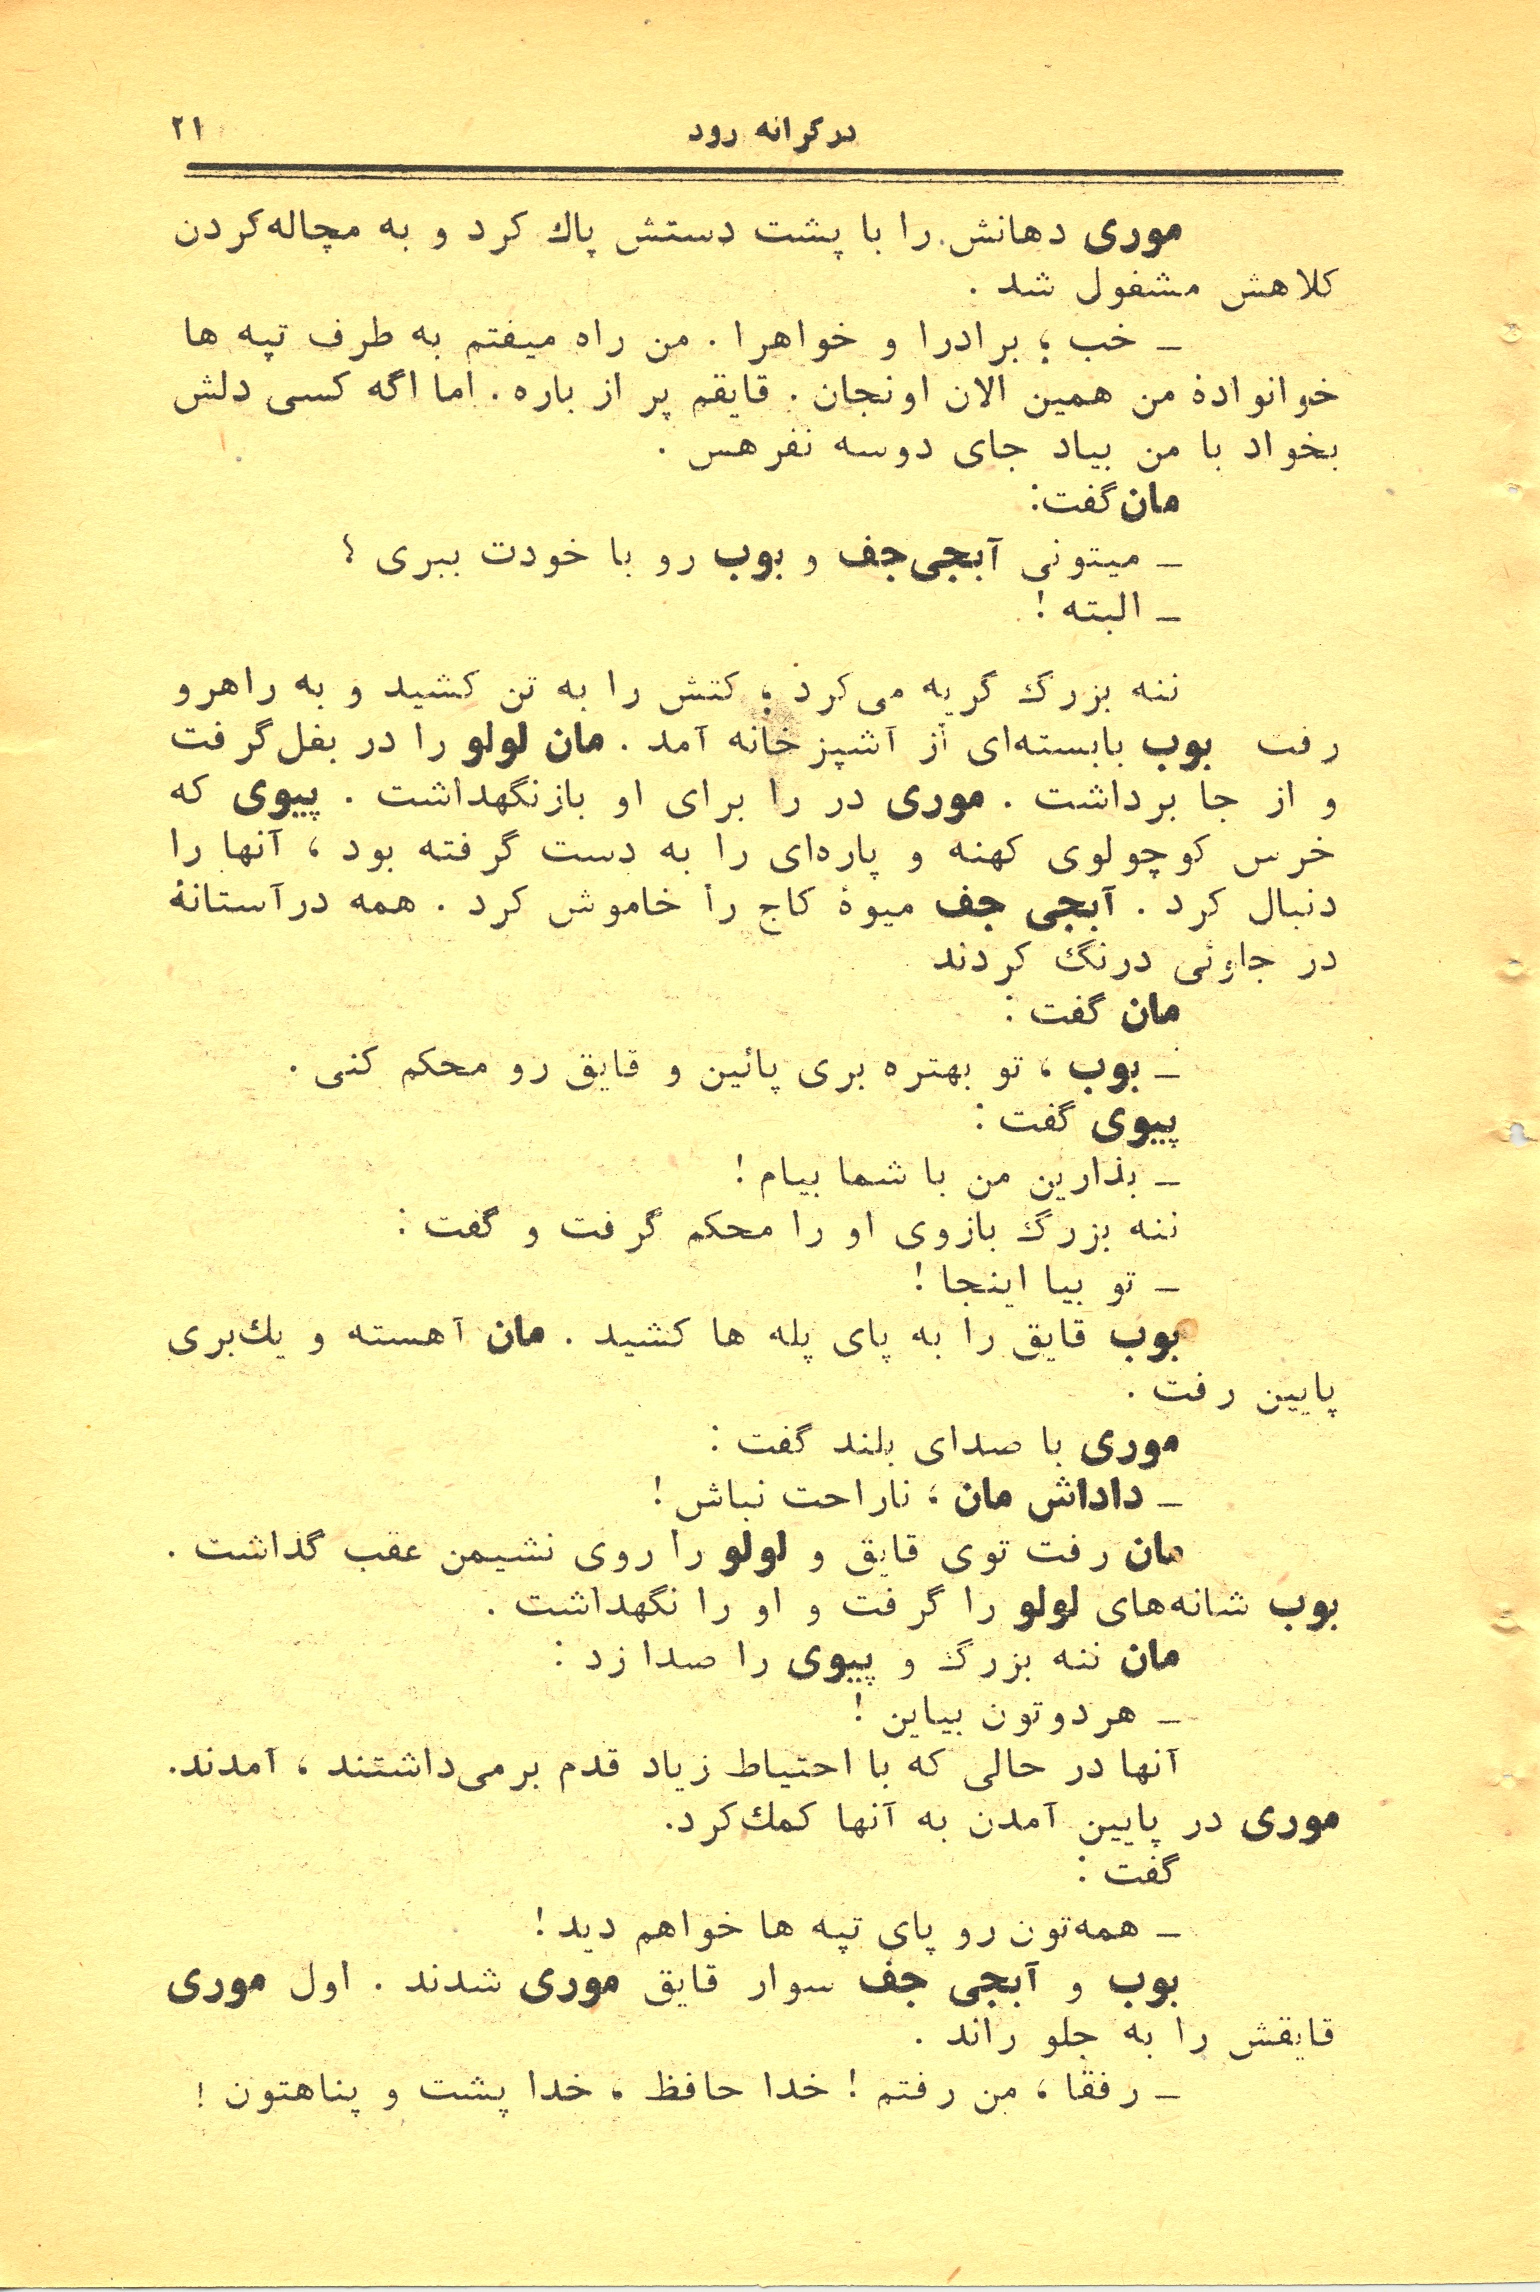 در کرانه رود ۲۱
موری دهانش را با پشت دستش پاك کرد و به مچاله‌کردن
کلاهش مشغول شد .
ـ خب ؛ برادرا و خواهرا . من راه میفتم به طرف تپه ها
خوانوادهٔ من همین الان اونجان . قایقم پر از باره . اما اگه کسی دلش
بخواد با من بیاد جای دوسه نفر هس .
مان گفت:
ـ میتونی آبجی‌جف و بوب رو با خودت ببری ؟
ـ البته !
ننه بزرگ گریه می‌کرد ؛ کتش را به تن کشید و به راهرو
رفت بوب بابسته‌ای از آشپزخانه آمد . مان لولو را در بغل گرفت
و از جا برداشت . موری در را برای او باز نگهداشت . پیوی که
خرس کوچولوی کهنه و پاره‌ای را به دست گرفته بود ، آنها را
دنبال کرد . آبجی جف میوهٔ کاج را خاموش کرد . همه در آستانهٔ
در جلوئی درنگ کردند
مان گفت :
ـ بوب ، تو بهتره بری پائین و قایق رو محکم کنی .
پیوی گفت :
ـ بذارین من با شما بیام !
ننه بزرگ بازوی او را محکم گرفت و گفت :
ـ تو بیا اینجا !
بوب قایق را به پای پله ها کشید . مان آهسته و یك‌بری
پایین رفت .
موری با صدای بلند گفت :
ـ داداش مان ، ناراحت نباش !
مان رفت توی قایق و لولو را روی نشیمن عقب گذاشت .
بوب شانه‌های لولو را گرفت و او را نگهداشت .
مان ننه بزرگ و پیوی را صدا زد :
ـ هردوتون بیاین !
آنها در حالی که با احتیاط زیاد قدم برمی‌داشتند ، آمدند.
موری در پایین آمدن به آنها کمك کرد.
گفت :
ـ همه‌تون رو پای تپه ها خواهم دید !
بوب و آبجی جف سوار قایق موری شدند . اول موری
قایقش را به جلو راند .
ـ رفقا ، من رفتم ! خدا حافظ ، خدا پشت و پناهتون !